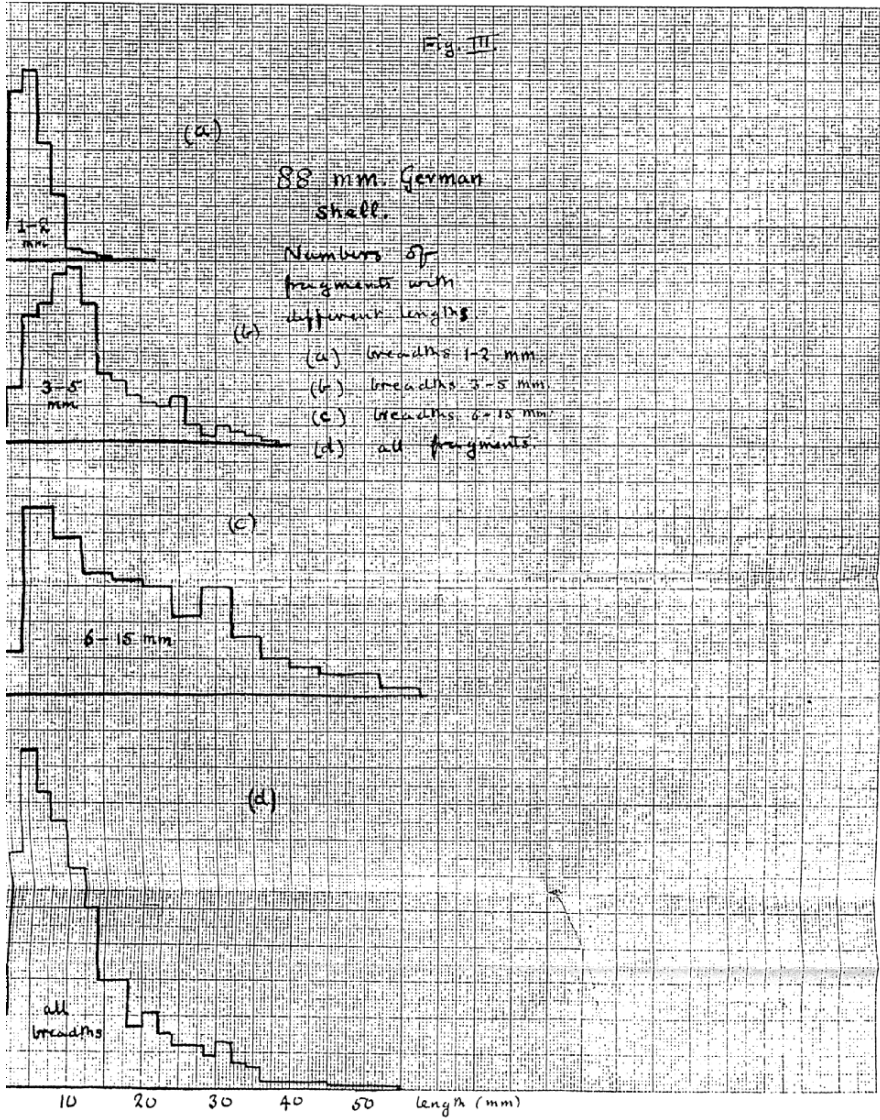 Fig. III.
(a)
88 mm. German
shell.
1-2
mm
Numbers of
fragments with
different lengths.
(b)
(a) breadths 1-2 mm.
3-5
mm
(b) breadths 3-5 mm.
(c) breadths 6-15 mm.
(d) all fragments.
(c)
6-15 mm
(d)
all
breadths
10 20 30 40 50 length (mm)